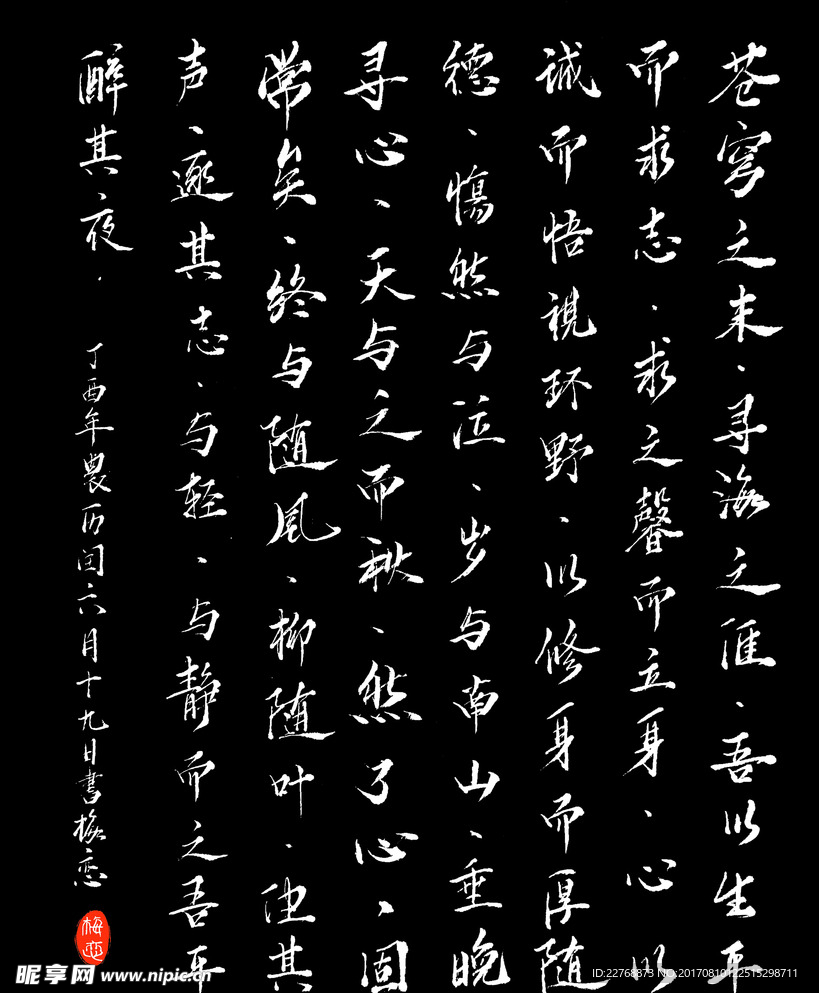 苍穹之末、寻海之涯、吾以生平
而求志、求之馨而立身、心以
诚而悟視环野、以修身而厚随
德、惕然与泣、岁与南山、垂晚
寻心、天与之而秋、然了心、固
常矣、终与随风、柳随叶、他其
声、逐其志、与轻、与静而之吾平
醉其、夜、
丁酉年農历闰六月十九日書梅恋
梅恋
昵享网 www.nipic.cn
ID:22768873 NO:20170810122513298711